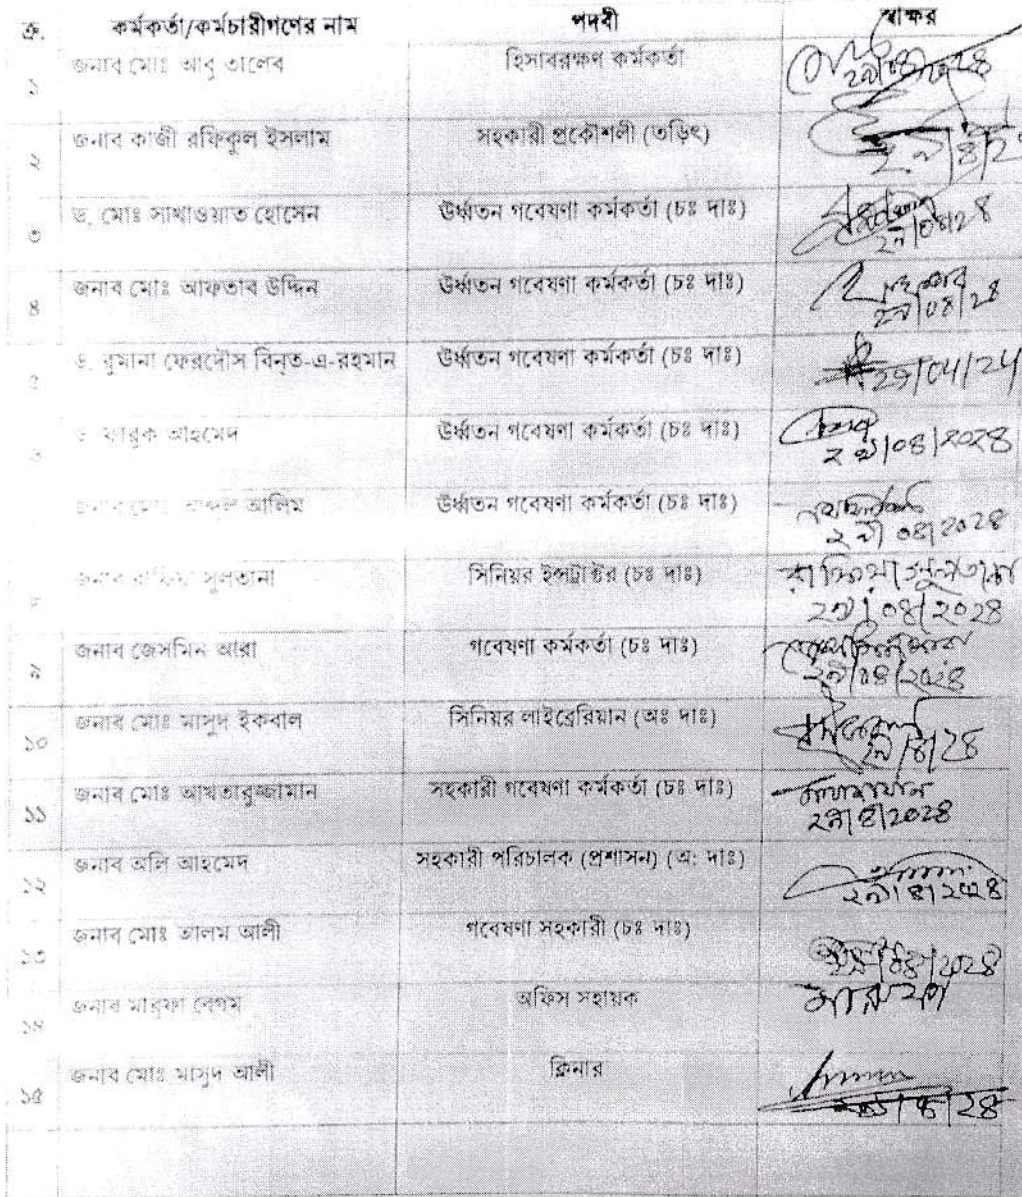 ক্র. কর্মকর্তা/কর্মচারীগণের নাম পদবী স্বাক্ষর
১ জনাব মোঃ আবু তালেব হিসাবরক্ষণ কর্মকর্তা ২৯/০৪/২০২৪
২ জনাব কাজী রফিকুল ইসলাম সহকারী প্রকৌশলী (তড়িৎ) ২৯/৪/২
৩ ড. মোঃ সাখাওয়াত হোসেন ঊর্ধ্বতন গবেষণা কর্মকর্তা (চঃ দাঃ) ২৯/০৪/২৪
৪ জনাব মোঃ আফতাব উদ্দিন ঊর্ধ্বতন গবেষণা কর্মকর্তা (চঃ দাঃ) ২৯/০৪/২৪
৫ ড. রুমানা ফেরদৌস বিনত-এ-রহমান ঊর্ধ্বতন গবেষণা কর্মকর্তা (চঃ দাঃ) 29/04/24
ফারুক আহমেদ ঊর্ধ্বতন গবেষণা কর্মকর্তা (চঃ দাঃ) ২৯/০৪/২০২৪
আলিম ঊর্ধ্বতন গবেষণা কর্মকর্তা (চঃ দাঃ) ২৯/০৪/২০২৪
জনাব রাফিয়া সুলতানা সিনিয়র ইন্সট্রাক্টর (চঃ দাঃ) রাফিয়া সুলতানা
২৯/০৪/২০২৪
৯ জনাব জেসমিন আরা গবেষণা কর্মকর্তা (চঃ দাঃ) ২৯/০৪/২০২৪
১০ জনাব মোঃ মাসুদ ইকবাল সিনিয়র লাইব্রেরিয়ান (অঃ দাঃ) ২৯/৪/২৪
১১ জনাব মোঃ আখতারুজ্জামান সহকারী গবেষণা কর্মকর্তা (চঃ দাঃ) ২৯/৪/২০২৪
১২ জনাব অলি আহমেদ সহকারী পরিচালক (প্রশাসন) (অ: দাঃ) ২৯/৪/২০২৪
১৩ জনাব মোঃ আলম আলী গবেষণা সহকারী (চঃ দাঃ) ২৯/০৪/২০২৪
১৪ জনাব মারুফা বেগম অফিস সহায়ক মারুফা
১৫ জনাব মোঃ মাসুদ আলী ক্লিনার ২৯/৪/২৪